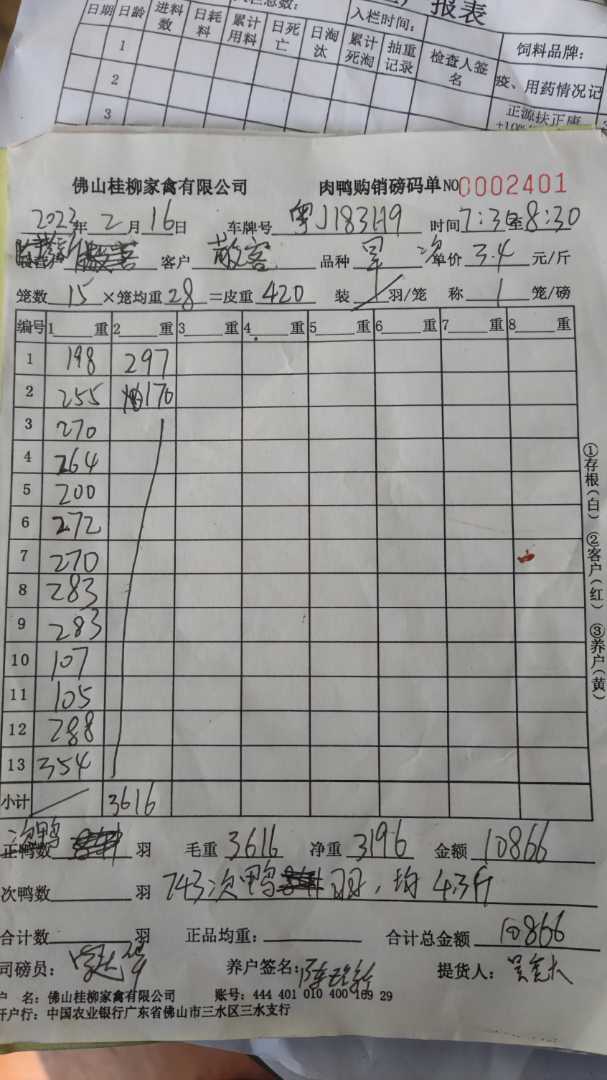 报表
入栏总数:
入栏时间:
日期 日龄 进料数 日耗料 累计用料 日死亡 日淘汰 累计死淘 抽重记录 检查人签名 饲料品牌:
1 疫、用药情况记
2 正源扶正康
3
佛山桂柳家禽有限公司 肉鸭购销磅码单 NO 0002401
2023年 2月 16日 车牌号 粤J183H9 时间 7:30至8:30
客户 散客 品种 次 单价 3.4 元/斤
笼数 15 ×笼均重 28 =皮重 420 装 羽/笼 称 1 笼/磅
编号 1 重 2 重 3 重 4 重 5 重 6 重 7 重 8 重
1 198 297
2 255 170
3 270
4 264
5 200
6 272
7 270
8 283
9 283
10 107
11 105
12 288
13 354
小计 3616
①存根(白) ②客户(红) ③养户(黄)
次鸭
正鸭数 羽 毛重 3616 净重 3196 金额 10866
次鸭数 羽 743次鸭 羽，均4.3斤
合计数 羽 正品均重: 合计总金额 10866
司磅员: 养户签名: 提货人:
户 名: 佛山桂柳家禽有限公司 账号: 444 401 010 400 169 29
开户行: 中国农业银行广东省佛山市三水区三水支行